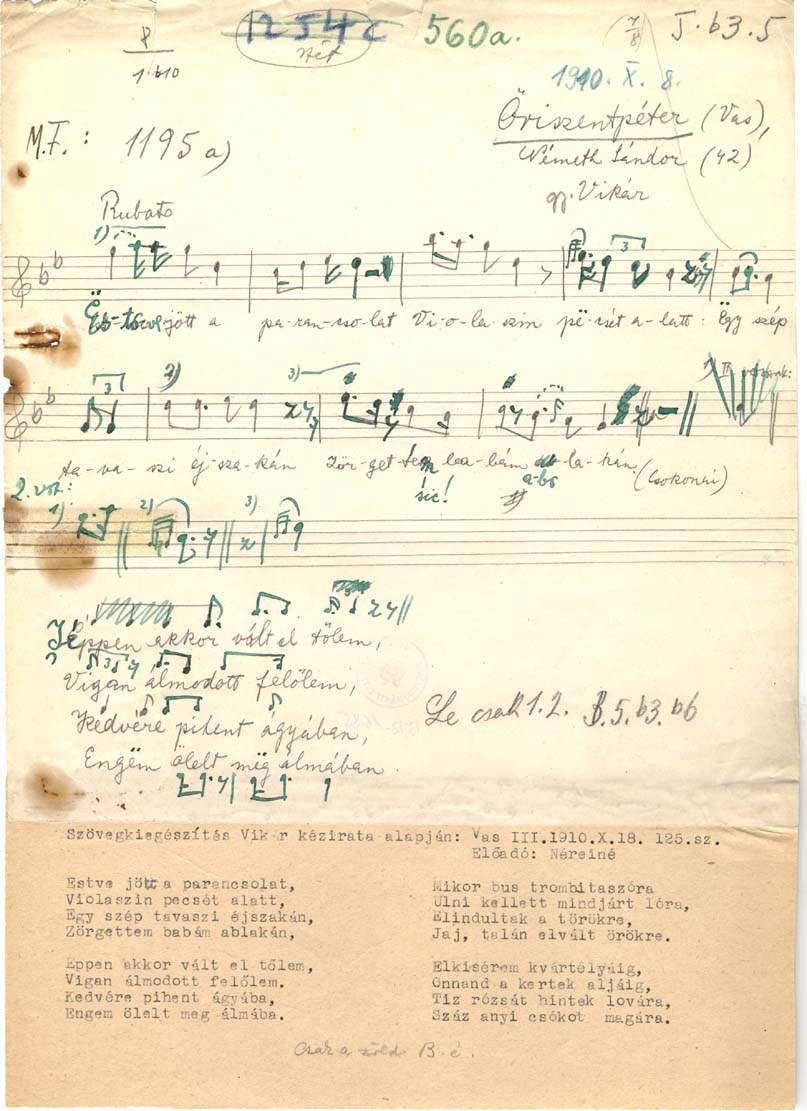 1254c 560a. (7/8) J. b3. 5
1. b10
1910. X. 8.
Őriszentpéter (Vas),
M.F.: 1195 a)
Németh Sándor (42)
gy. Vikár
Rubato
1)
3
jött a pa-ran-cso-lat Vi-o-la-szin pë-csét a-latt: Ëgy szép
3 2) 3)
ta-va-szi éj-sza-kán Zör-get-tem ba-bám la-kán. (Csokonai)
sic! a-bº
2. vsz:
1) 2) 3)
Jéppen akkor vált el tőlem,
3
Vigan álmodott felőlem,
Kedvére pihent ágyában,
Engëm ölelt még álmában.
Le csak 1. 2. B. 5. b3. b6
Szövegkiegészítés Vik r kézirata alapján: Vas III.1910.X.18. 125.sz.
Előadó: Néreiné
Estve jött a parancsolat,
Violaszin pecsét alatt,
Egy szép tavaszi éjszakán,
Zörgettem babám ablakán,
Eppen akkor vált el tőlem,
Vigan álmodott felőlem.
Kedvére pihent ágyába,
Engem ölelt meg álmába.
Mikor bus trombitaszóra
Ulni kellett mindjárt lóra,
Elindultak a törökre,
Jaj, talán elvált örökre.
Elkisérem kvártélyáig,
Onnand a kertek aljáig,
Tiz rózsát hintek lovára,
Száz anyi csókot magára.
Csak a zöld B. é.